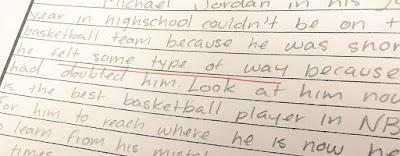 Michael Jordan in his
year in highschool couldn't be on
basketball team because he was
he felt some type of way because
had doubted him. Look at him
is the best basketball player in NB
for him to reach where he is now he
learn from his
times